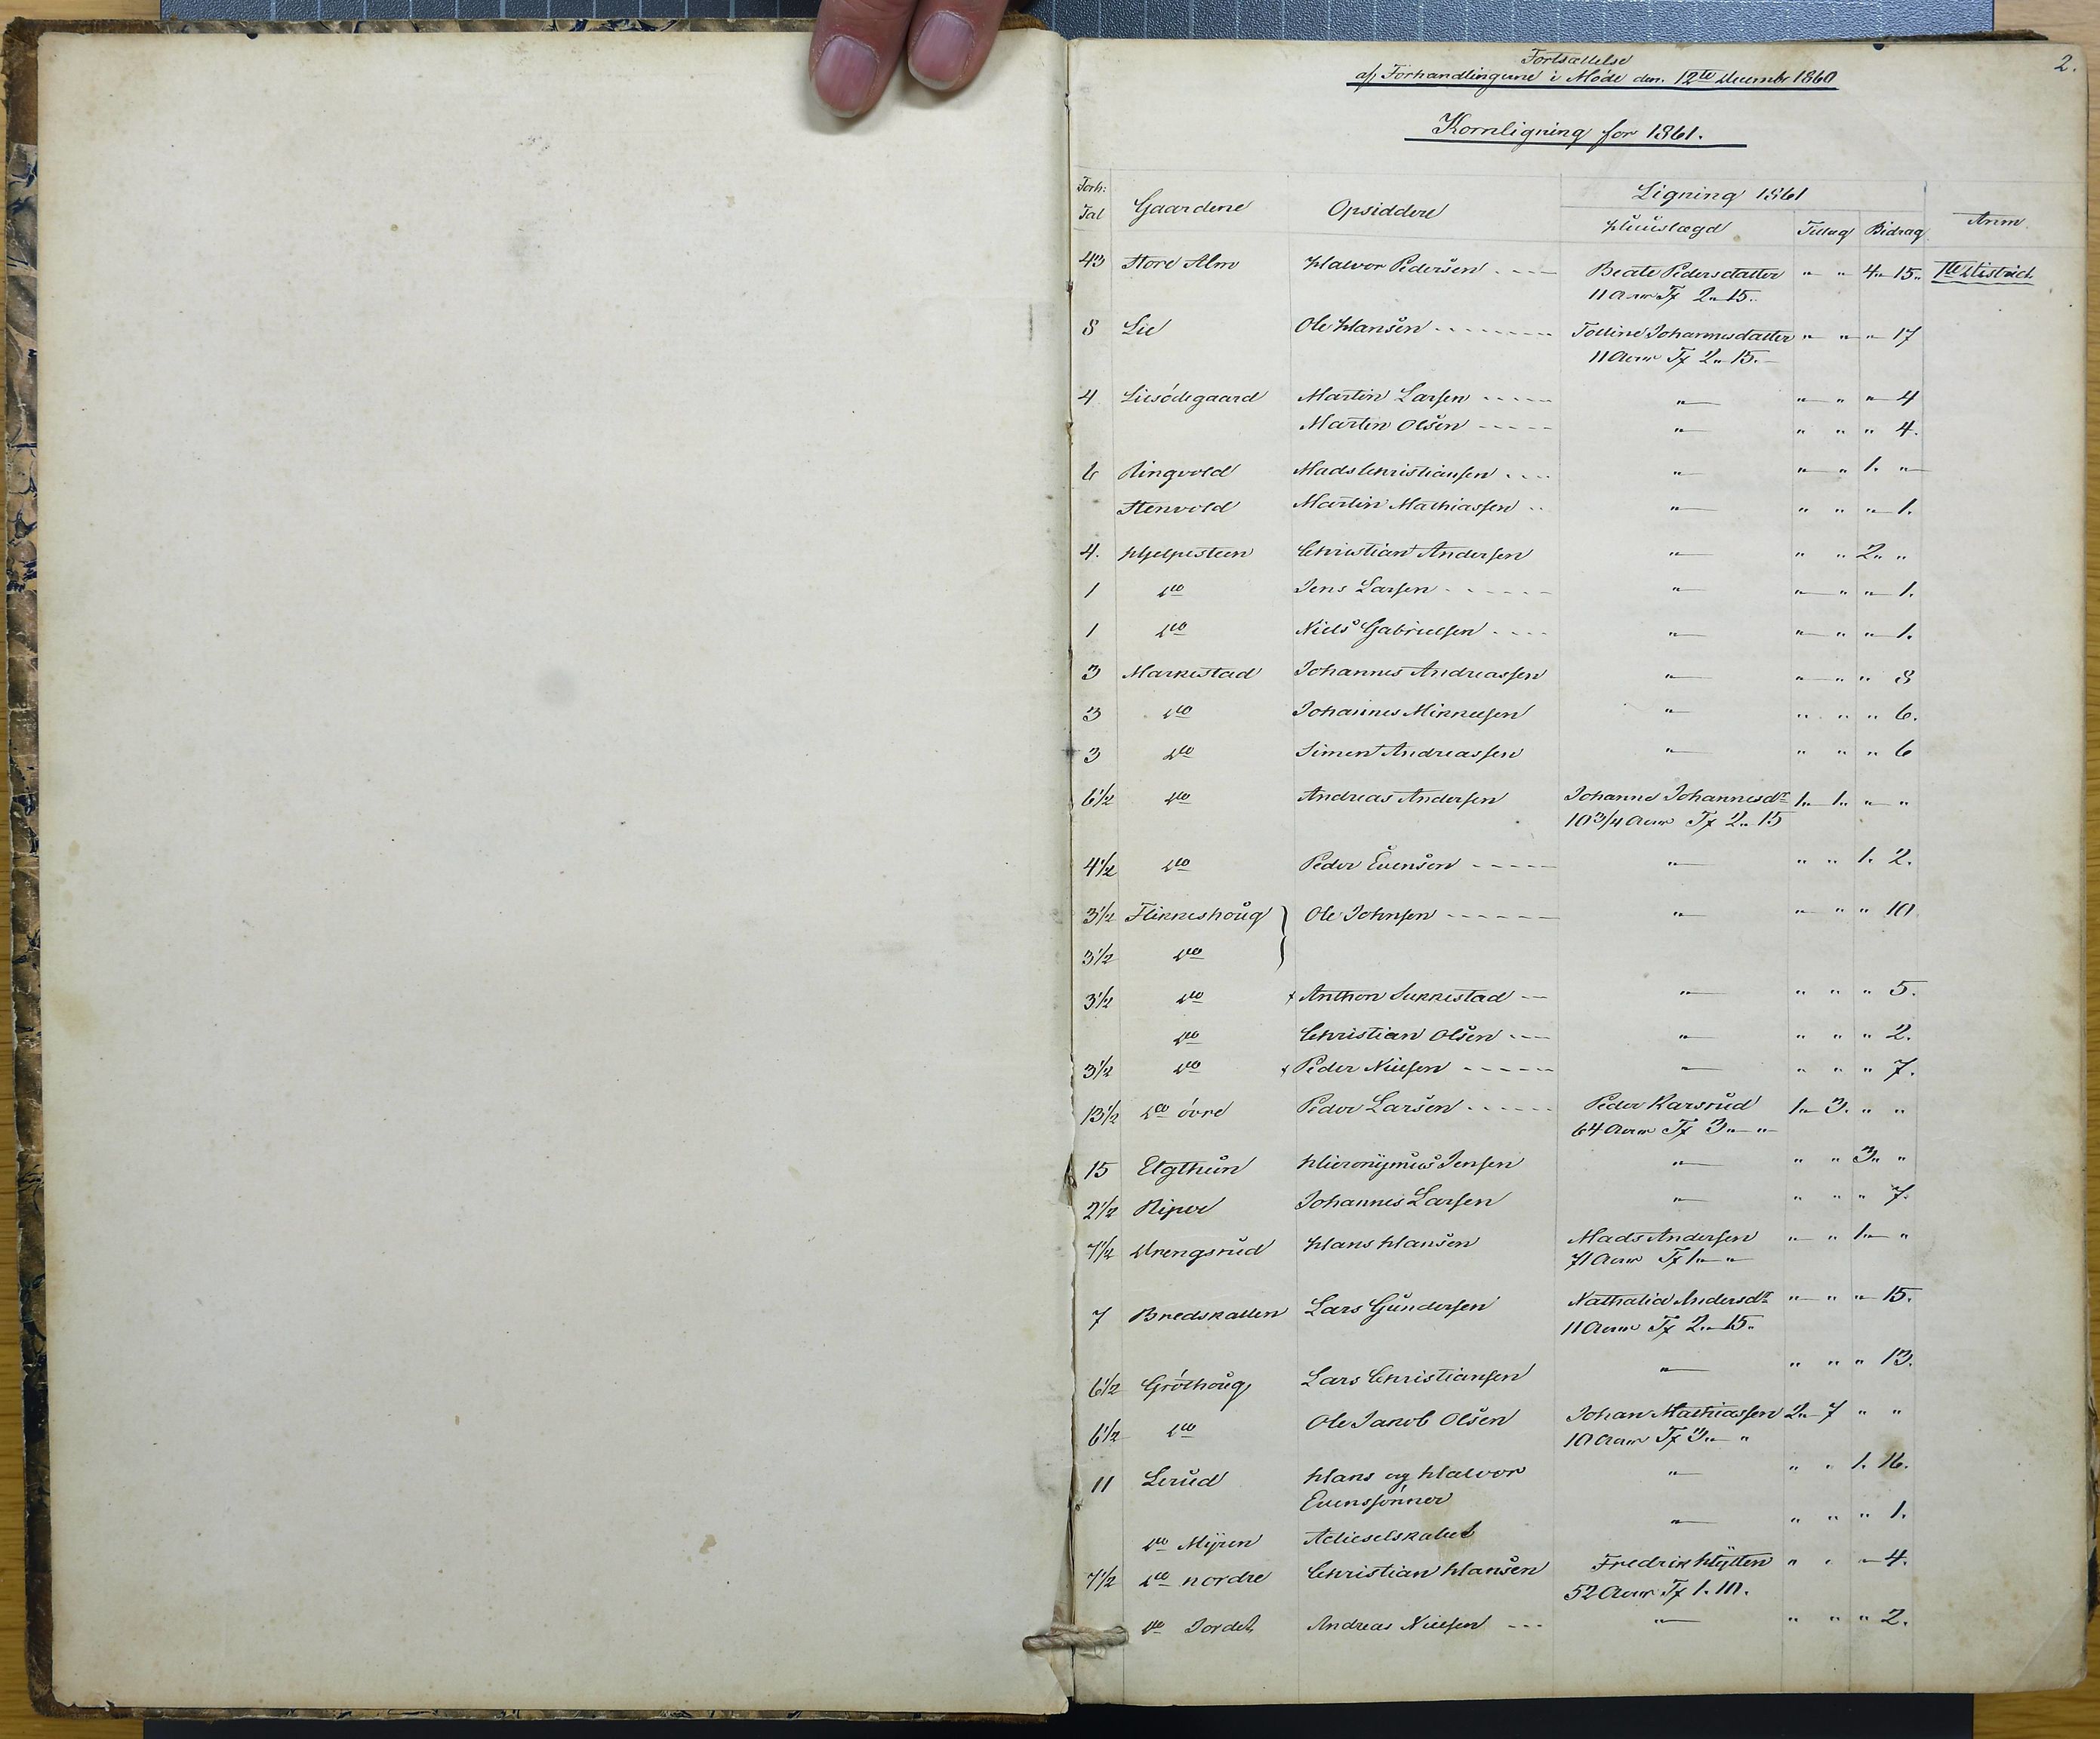 2.
Fortsættelse
af Forhandlingerne i Møde den 12te Decembr 1860
Kornligning for 1861.
Forh: Tal Gaardene Opsiddere Ligning 1861 Anm.
Huuslægd Tillæg Bidrag
43 Store Alm Halvor Pedersen . - — Beate Pedersdatter " " 4 " 15 " 1te District
11 Aar Tx 2 " 15 "
8 Lie Ole Hansen - - - - Johannesdatter " " " 17
11 Aar Tx 2 " 15 "
4 Liesødegaard Martin Larsen - - - - " " " " 4
Martin Olsen - - - - " " " " 4.
6 Ringvold Mads Christiansen - - - " " " 1. "
Stenvold Martin Mathiassen - - " " " " 1.
4. Hjelpesteen Christian Andersen " " " 2 " "
1 do Jens Larsen - - - - " " " " 1.
1 do Niels Gabrielsen - - - " " " " 1.
3 Markestad Johannes Andreassen " " " " 8
3 do Johannes Mikkelsen " " " " 6.
3 do Simen Andreassen " " " " 6
6½ do Andreas Andersen Johanne Johannesdr 1 " 1 " " "
10 3/4 Aar Tx 2 " 15
4½ do Peder Evensen - - - - " " " 1. 2.
3½ Flikkeshoug } Ole Johnsen - - - - " " " " 10
3½ do
3½ do x Anthon Sukkestad - - " " " " 5.
do Christian Olsen - - - " " " " 2.
3½ do x Peder Nielsen - - - - " " " " 7.
13½ do øvre Peder Larsen - - - - Peder Karsrud 1 " 3. " "
64 Aar Tx 3 " "
15 Elgthun Hieronymus Jensen " " " 3 " "
2½ Johannes Larsen " " " " 7.
7½ Drengsrud Hans Hansen Mads Andersen " " 1 " "
71 Aar Tx 1 " "
7 Bredskallen Lars Gundersen Nathalia Andersdr " " " 15.
11 Aar Tx 2 " 15 "
6½ Grøthoug Lars Christiansen " " " " 13.
6½ do Ole Jakob Olsen Johan Mathiassen 2 " 7 " "
10 Aar Tx 3 " "
11 Lerud Hans og Halvor " " " 1. 16.
Evensønner
do Myren Actieselskabet " " " " 1.
7½ do nordre Christian Hansen Fredrik Hytten " " " 4.
52 Aar Tx 1. 10.
do Jordet Andreas Nielsen - - - " " " " 2.